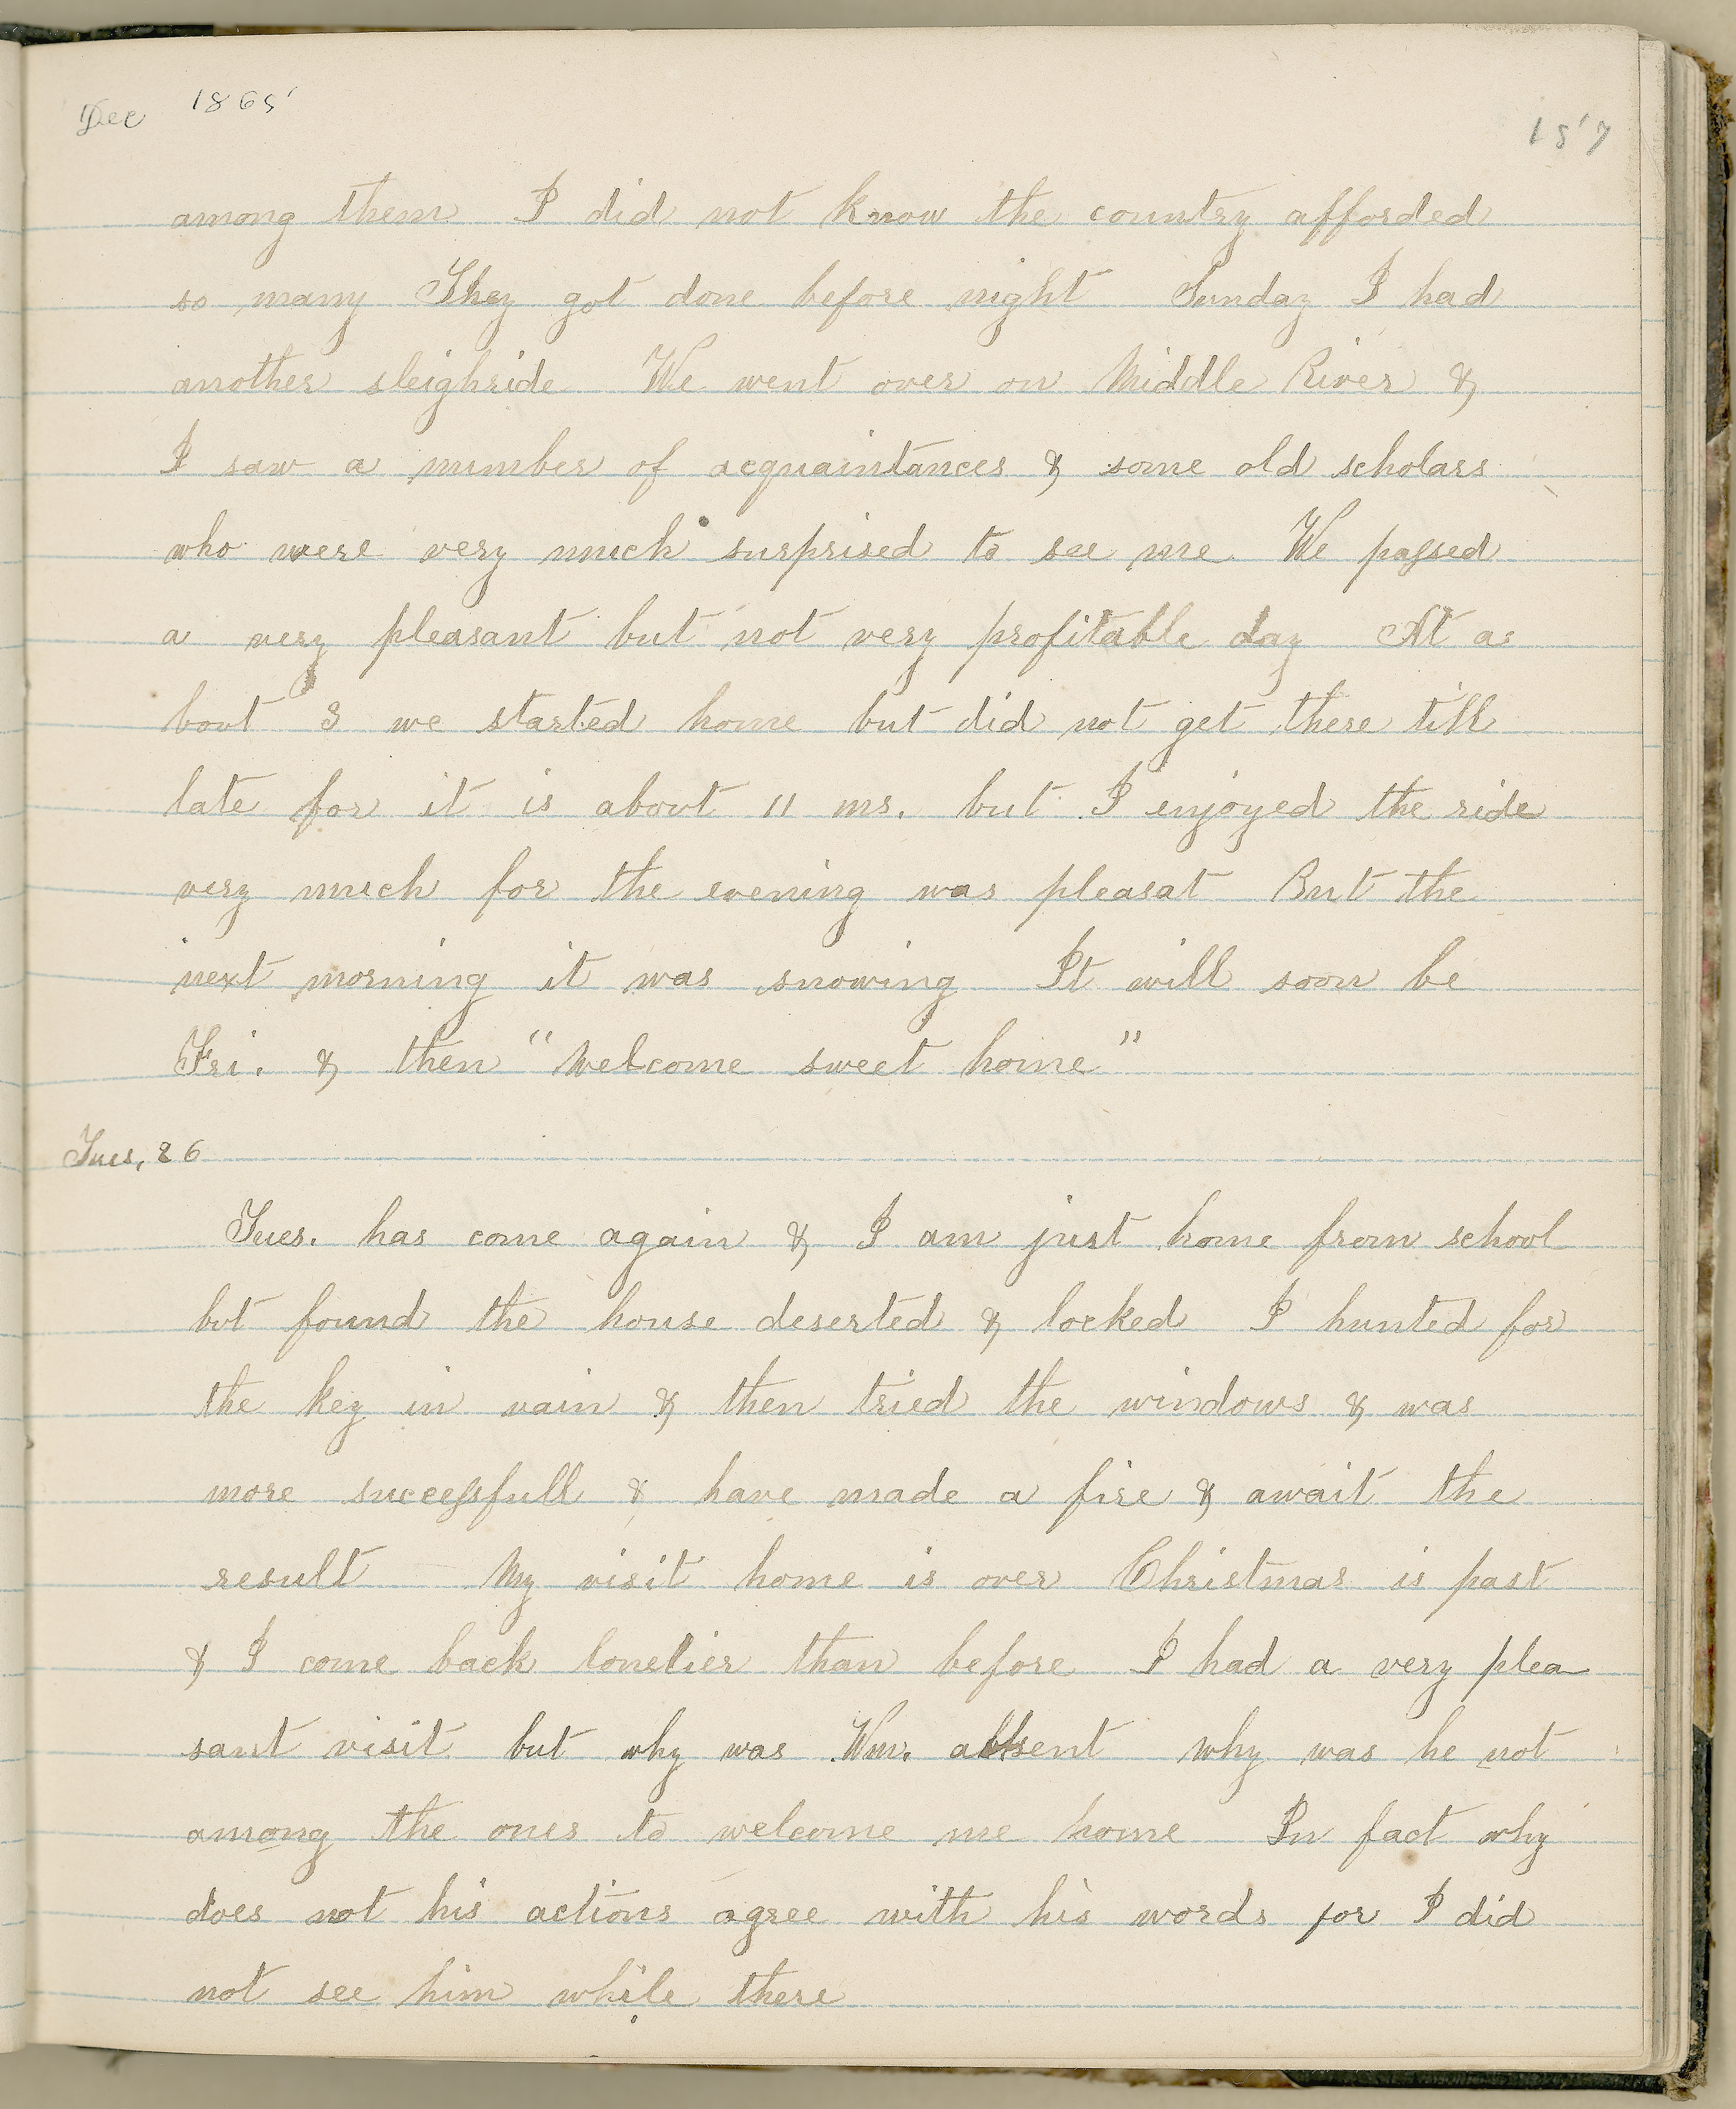 Dec 1865
157
among them I did not know the country afforded
so many They got done before night Sunday I had
another sleighride We went over on Middle River &
I saw a number of acquaintances & some old scholars
who were very much surprised to see me. We passed
a very pleasant but not very profitable day At a=
bout 3 we started home but did not get there till
late for it is about 11 ms. but I enjoyed the ride
very much for the evening was pleasat But the
next morning it was snowing It will soon be
Fri. & then "Welcome sweet home"
Tues, 26
Tues. has come again & I am just home from school
but found the house deserted & locked I hunted for
the key in vain & then tried the windows & was
more successfull & have made a fire & await the
result My visit home is over Christmas is past
& I come back lonelier than before I had a very plea
sant visit but why was Wm. absent why was he not
among the ones to welcome me home In fact why
does not his actions agree with his words for I did
not see him while there